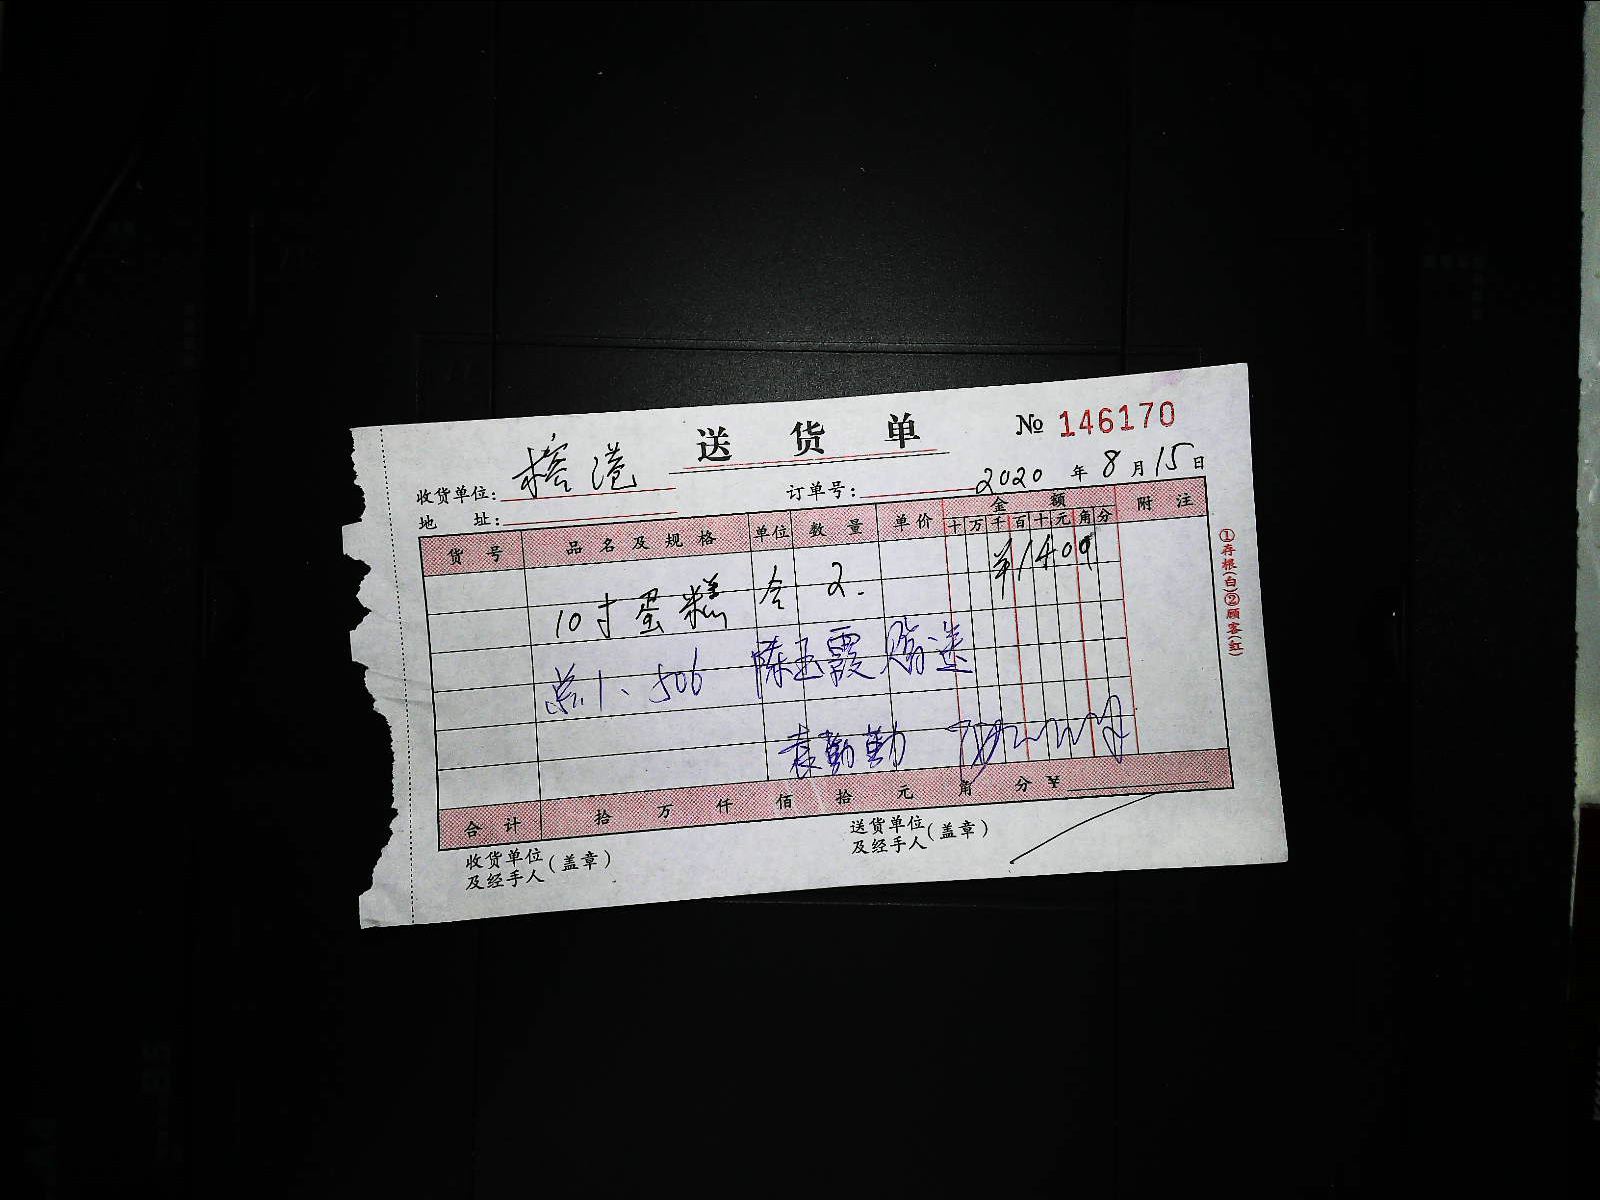 送货单 № 146170
收货单位: 榕港
订单号: 2020 年 8 月 15 日
地 址:
货 号 品 名 及 规 格 单位 数 量 单 价 金 额 附 注
十 万 千 百 十 元 角 分
10寸蛋糕 个 2. ¥1400
总1、506 陈玉霞 赠送
袁勤勤
合 计 拾 万 仟 佰 拾 元 角 分 ¥
收货单位及经手人(盖章)
送货单位及经手人(盖章)
①存根(白)②顾客(红)